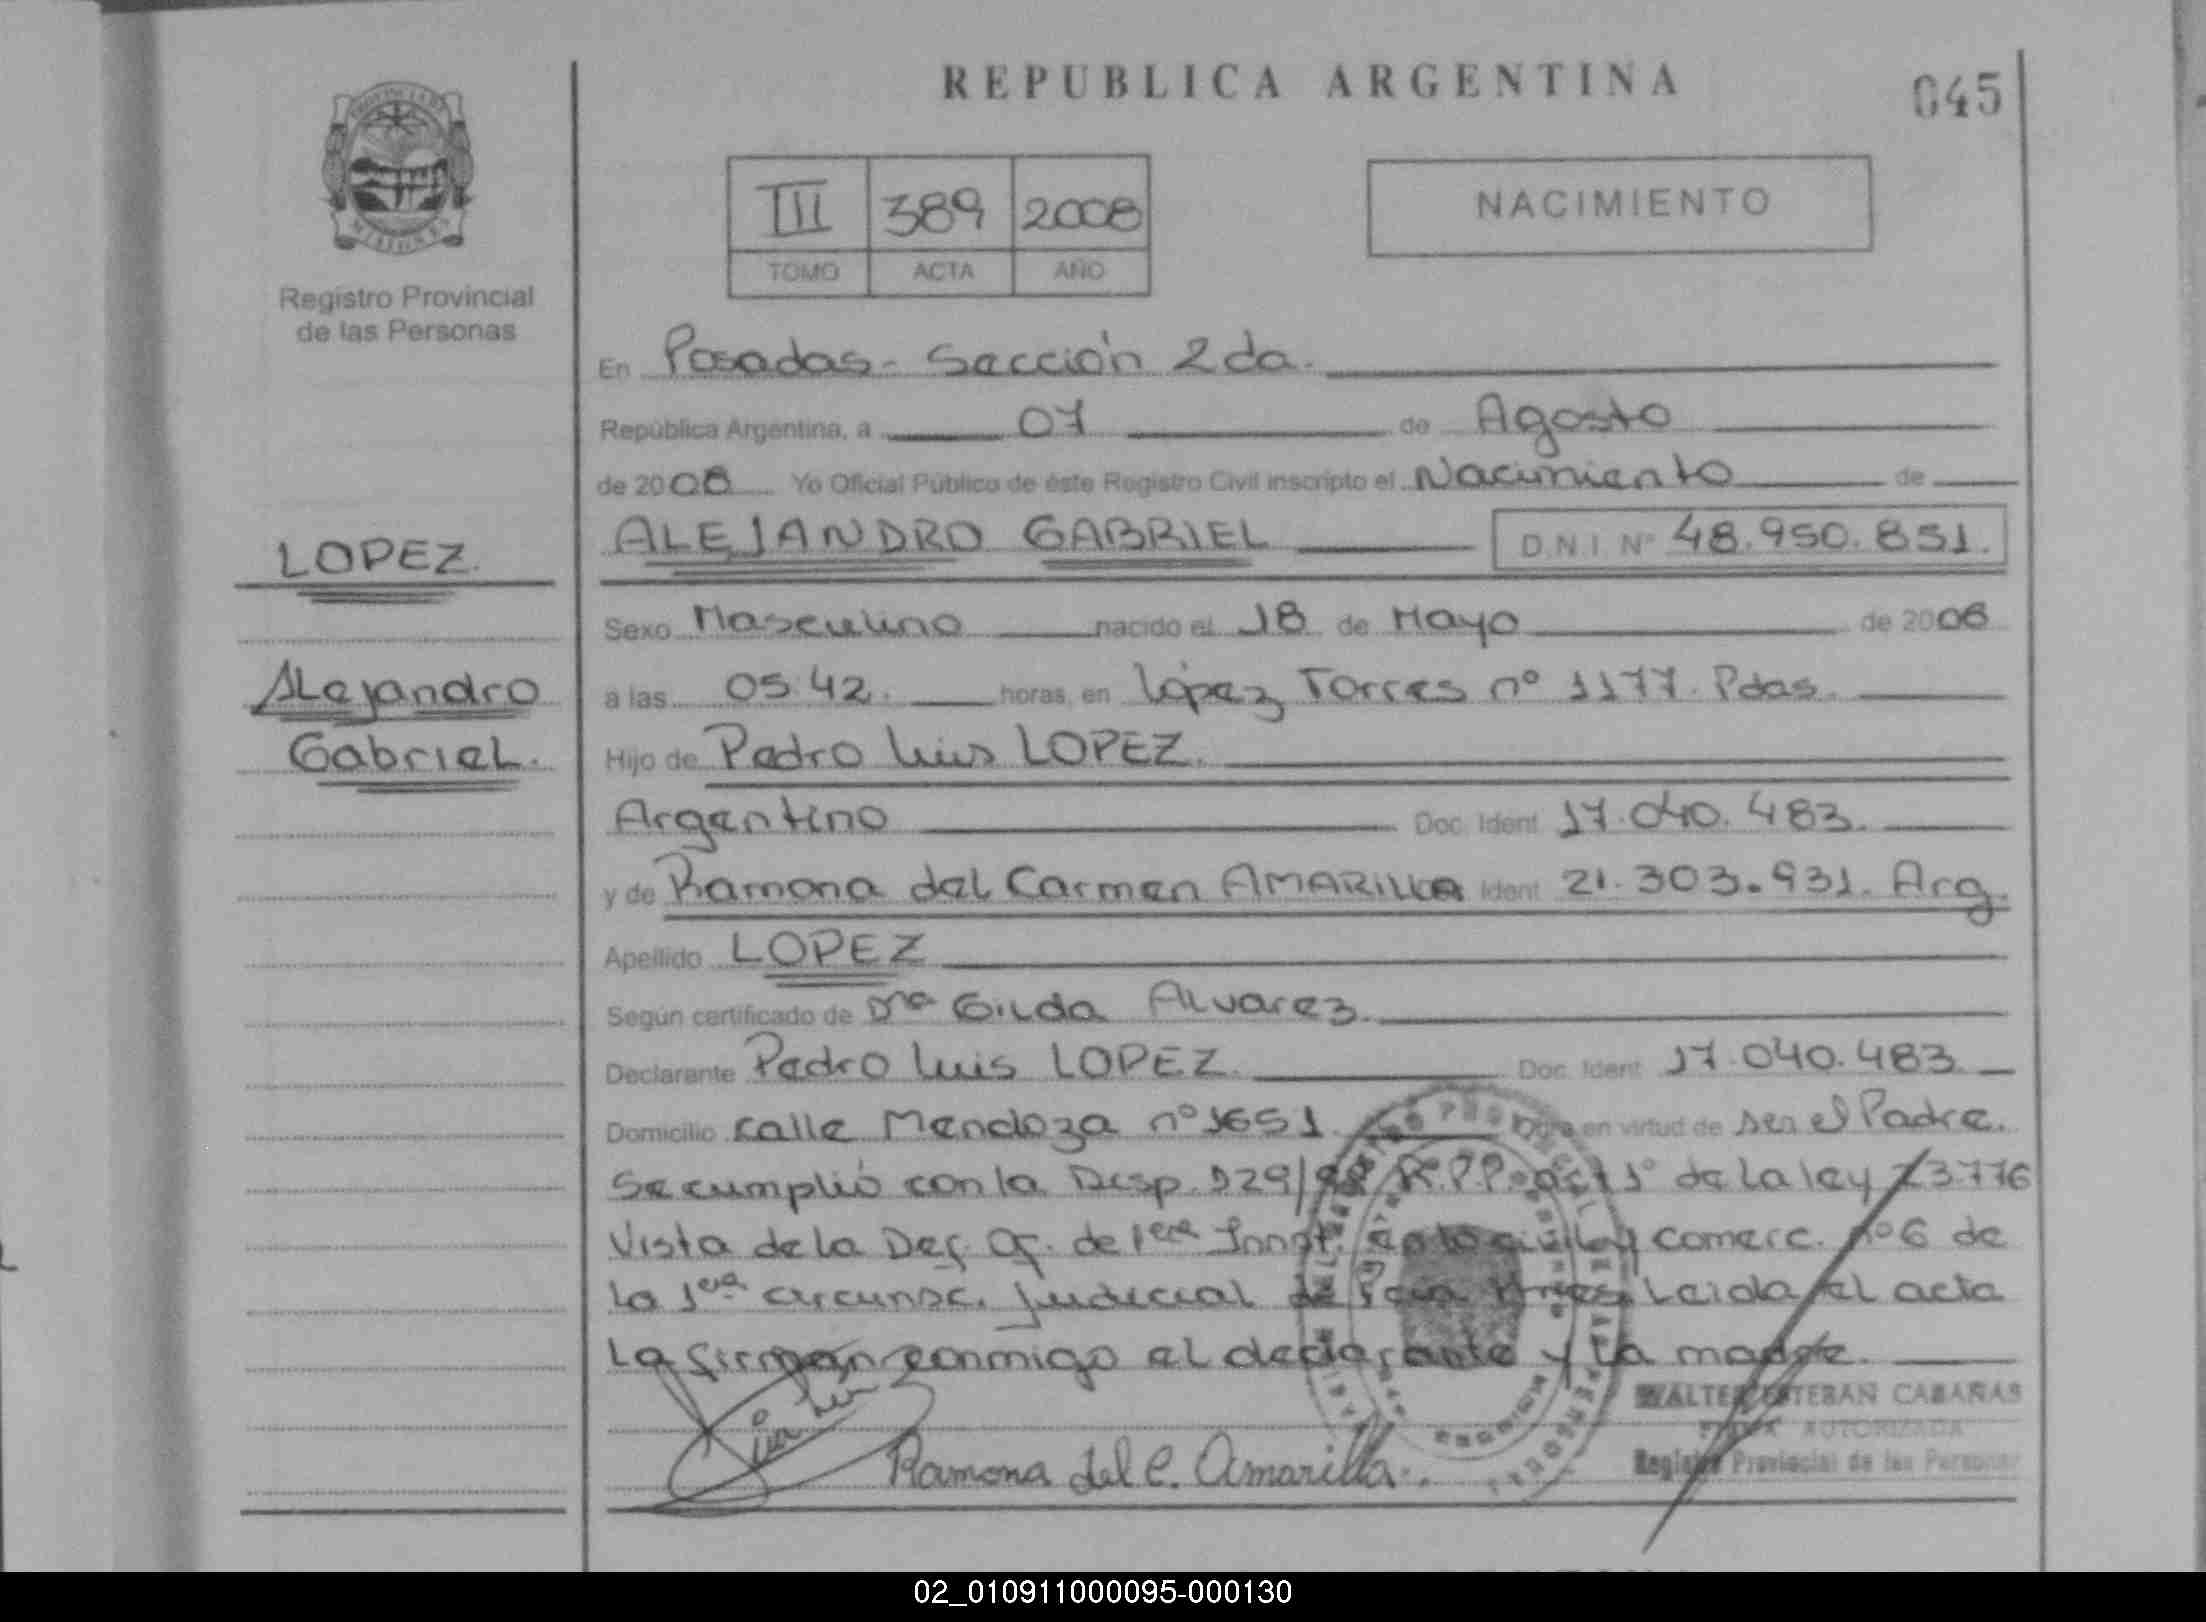 REPUBLICA ARGENTINA
045
PROVINCIA DE
MISIONES
Registro Provincial
de las Personas
III 389 2008
TOMO ACTA AÑO
NACIMIENTO
En Posadas - Sección 2da.
República Argentina, a 07 de Agosto
de 2008 Yo Oficial Público de éste Registro Civil inscripto el Nacimiento de
LOPEZ.
Alejandro
Gabriel.
ALEJANDRO GABRIEL D.N.I. Nº 48.950.851.
Sexo Masculino nacido el 18 de Mayo de 2008
a las 05:42. horas, en López Torres nº 1177. Pdas.
Hijo de Pedro Luis LOPEZ.
Argentino Doc. Ident. 17.040.483.
y de Ramona del Carmen AMARILLA Ident. 21.303.931. Arg.
Apellido LOPEZ
Según certificado de Drª Gilda Alvarez.
Declarante Pedro Luis LOPEZ. Doc. Ident. 17.040.483.
Domicilio calle Mendoza nº 1651. en virtud de ser el Padre.
Se cumplió con la Disp. 129/ R.P.P. art 1º de la ley 23776
Vista de la Def. Of. de 1era Innst. y comerc. nº 6 de
la 1era circunsc. judicial de Leida el acta
la firman conmigo el declarante y la madre.
Ramona del C. Amarilla.
WALTER ESTEBAN CABAÑAS
FIRMA AUTORIZADA
Registro Provincial de las Personas
02_010911000095-000130